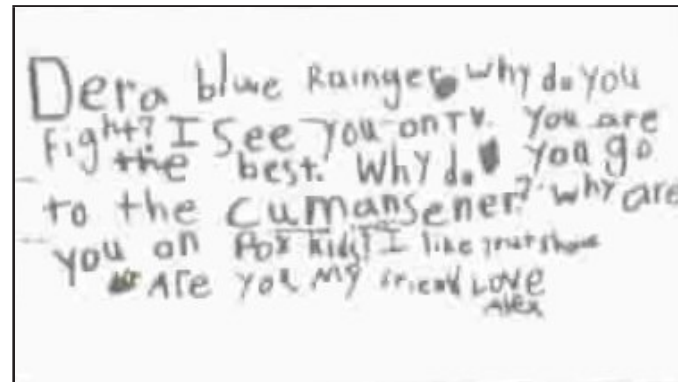 Dera blue Rainger why do you
fight? I see you on TV. You are
the best. Why do you go
to the cumansener? why are
you on Fox kids? I like your show
Are you my friend Love
Alex